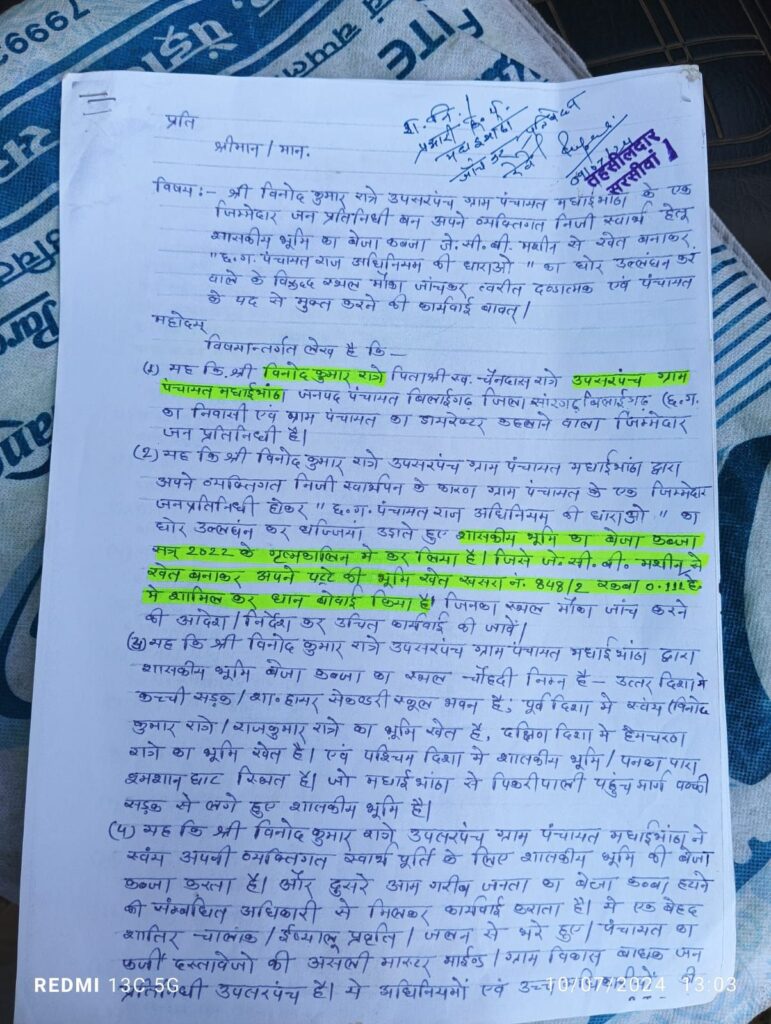 7992
FITE
प्रति
श्रीमान / मान.
तहसीलदार
सरसीवां
विषय:- श्री विनोद कुमार रात्रे उपसरपंच ग्राम पंचायत मधाईभांठा के एक
जिम्मेदार जन प्रतिनिधी बन अपने व्यक्तिगत निजी स्वार्थ हेतू
शासकीय भूमि का बेजा कब्जा जे. सी. बी. मशीन से खेत बनाकर,
"छ.ग. पंचायत राज अधिनियम की धाराओ" का घोर उल्लंघन करने
वाले के विरूद्द स्थल मौका जांचकर त्वरीत दण्डात्मक एवं पंचायत
के पद से मुक्त करने की कार्यवाई बावत्।
महोदय्
विषयान्तर्गत लेख है कि —
(1) यह कि श्री विनोद कुमार रात्रे पिता श्री स्व. चैनदास रात्रे उपसरपंच ग्राम
पंचायत मधाईभांठा जनपद पंचायत बिलाईगढ़ जिला सारंगढ़ बिलाईगढ़ (छ.ग.
का निवासी एवं ग्राम पंचायत का डायरेक्टर कहलाने वाला जिम्मेदार
जन प्रतिनिधी है।
(2) यह कि श्री विनोद कुमार रात्रे उपसरपंच ग्राम पंचायत मधाईभांठा द्वारा
अपने व्यक्तिगत निजी स्वार्थपन के कारण ग्राम पंचायत के एक जिम्मेदार
जनप्रतिनिधी होकर "छ.ग. पंचायत राज अधिनियम की धाराओ" का
घोर उल्लंघन कर धज्जियां उड़ाते हुए शासकीय भूमि का बेजा कब्जा
सत्र 2022 के गृष्मकालिन मे कर लिया है। जिसे जे. सी. बी. मशीन से
खेत बनाकर अपने पट्टे की भूमि खेत खसरा नं. 848/2 रकबा 0.112 हे.
मे शामिल कर धान बोवाई किया है। जिनका स्थल मौका जांच करने
की आदेश / निर्देश कर उचित कार्यवाई की जावें।
(3) यह कि श्री विनोद कुमार रात्रे उपसरपंच ग्राम पंचायत मधाईभांठा द्वारा
शासकीय भूमि बेजा कब्जा का स्थल चौहदी निम्न है — उत्तर दिशा मे
कच्ची सड़क / शा. हायर सेकण्डरी स्कूल भवन है, पूर्व दिशा मे स्वयं (विनोद
कुमार रात्रे / राजकुमार रात्रे का भूमि खेत है, दक्षिण दिशा मे हेमचरण
रात्रे का भूमि खेत है। एवं पश्चिम दिशा मे शासकीय भूमि / पनका पारा
श्मशान घाट स्थित है। जो मधाईभांठा से पिकरीपाली पहुंच मार्ग पक्की
सड़क से लगे हुए शासकीय भूमि है।
(4) यह कि श्री विनोद कुमार रात्रे उपसरपंच ग्राम पंचायत मधाईभांठा ने
स्वंय अपनी व्यक्तिगत स्वार्थ पूर्ति के लिए शासकीय भूमि की बेजा
कब्जा करता है। और दुसरे आम गरीब जनता का बेजा कब्जा हटाने
की संम्बधित अधिकारी से मिलकर कार्यवाई कराता है। ये एक बेहद
शातिर चालाक / ईर्ष्यालू प्रवृति / जलन से भरे हुए / पंचायत का
फर्जी दस्तावेजो की असली मास्टर माईण्ड / ग्राम विकास बाधक जन
प्रतिनिधी उपसरपंच है। ये अधिनियमों एवं उच्च
REDMI 13C 5G
10/07/2024 13:03